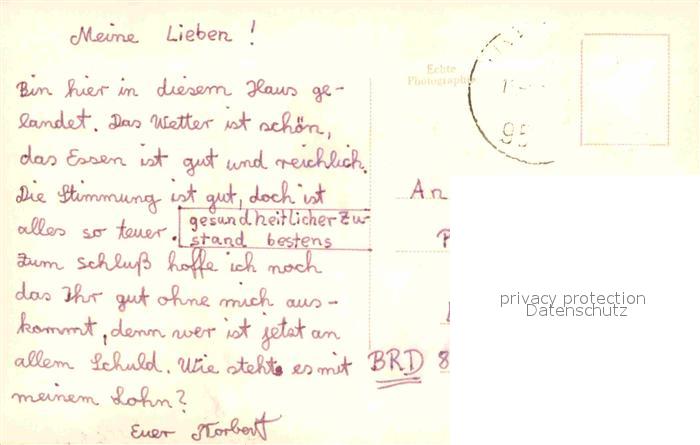 Meine Lieben !
Bin hier in diesem Haus ge-
landet. Das Wetter ist schön,
das Essen ist gut und reichlich.
Die Stimmung ist gut, doch ist
alles so teuer.
gesundheitlicher Zu-
stand bestens
Zum Schluß hoffe ich noch
das Ihr gut ohne mich aus-
kommt, denn wer ist jetzt an
allem Schuld. Wie steht es mit
meinem Lohn?
Euer Norbert
Echte
Photographie
95
An
BRD 8
privacy protection
Datenschutz